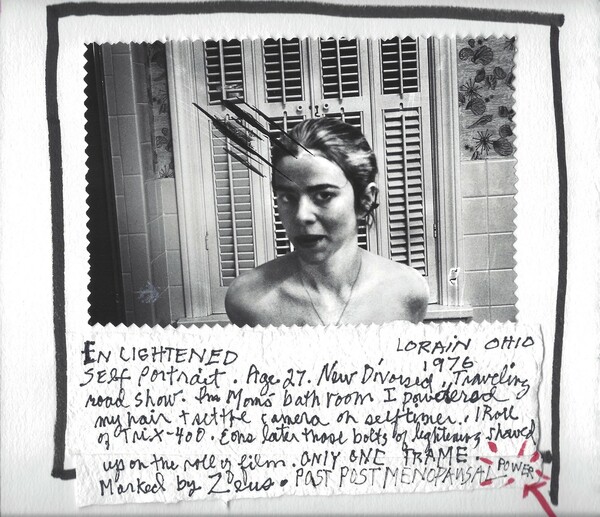 ENLIGHTENED
LORAIN OHIO
1976.
Self Portrait. Age 27. New Divorsed, Traveling
road show. In Moms bathroom I powdered
my hair + set the camera on selftimer. 1 Roll
of Tri-X-400. Eons later those bolts of lightening showed
up on the roll of film. ONLY ONE FRAME.
Marked by Zeus. POST POST MENOPAUSAL POWER